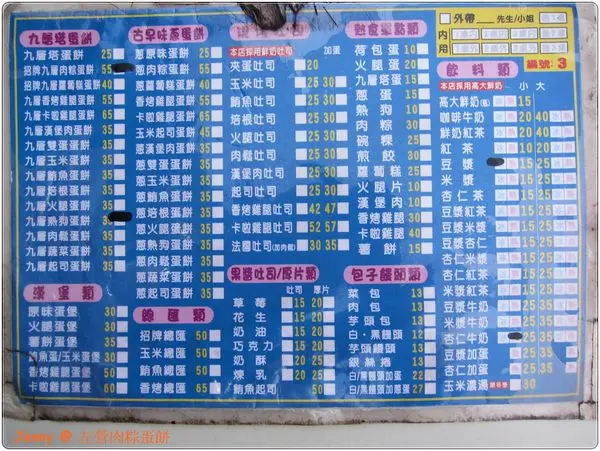 九層塔蛋餅
九層塔蛋餅 25
招牌九層肉粽蛋餅 55
招牌九層蘿蔔糕蛋餅 40
九層香烤雞腿蛋餅 55
九層卡啦雞腿蛋餅 65
九層漢堡肉蛋餅 35
九層雙蛋蛋餅 35
九層玉米蛋餅 35
九層鮪魚蛋餅 35
九層培根蛋餅 35
九層火腿蛋餅 35
九層熱狗蛋餅
九層肉鬆蛋餅 35
九層蔬菜蛋餅 35
九層起司蛋餅 35
漢堡類
原味蛋堡 30
火腿蛋堡 30
薯餅蛋堡 35
鮪魚蛋/玉米蛋堡 30
香烤雞腿蛋堡 50
卡啦雞腿蛋堡 60
古早味蛋餅類
蔥原味蛋餅 25
蔥肉粽蛋餅 55
蔥蘿蔔糕蛋餅 40
香烤雞腿蛋餅 55
卡啦雞腿蛋餅 65
蔥玉米起司蛋餅 45
蔥漢堡肉蛋餅 35
蔥雙蛋蛋餅 35
蔥玉米蛋餅 35
蔥鮪魚蛋餅 35
蔥培根蛋餅 35
蔥火腿蛋餅 35
蔥熱狗蛋餅 35
蔥肉鬆蛋餅 35
蔥蔬菜蛋餅 35
蔥起司蛋餅 35
總匯類
招牌總匯 50
玉米總匯 50
鮪魚總匯 50
香烤總匯 65
本店採用鮮奶吐司 加蛋
夾蛋吐司 20
玉米吐司 25 30
鮪魚吐司 25 30
培根吐司 25 30
火腿吐司 25 30
肉鬆吐司 25 30
漢堡肉吐司 25 30
起司吐司 25 30
香烤雞腿吐司 42 47
卡啦雞腿吐司 52 57
法國吐司(加肉鬆) 30 35
果醬吐司/厚片類
吐司 厚片
草莓 15 20
花生 15 20
奶油 15 20
巧克力 15 20
奶酥 15 20
煉乳 15 20
鮪魚起司 50
熱食單點類
荷包蛋 10
火腿蛋 20
九層塔蛋 15
蔥蛋 15
熱狗 10
肉粽 30
碗粿 25
煎餃 30
蘿蔔糕 25
火腿片 10
漢堡肉 10
香烤雞腿 30
卡啦雞腿 40
薯餅 15
包子饅頭類
菜包 13
肉包 13
芋頭包 13
白·黑饅頭 12
芋頭饅頭 13
銀絲捲 13
白/黑饅頭加蛋 22
白/黑饅頭加蔥蛋 27
外帶 先生/小姐
內
用
編號:3
飲料類
本店採用高大鮮奶 小 大
高大鮮奶(瓶) 15
咖啡牛奶 20 40
鮮奶紅茶 20 40
紅茶 15 20
豆漿 15 20
米漿 15 20
杏仁茶 15 20
豆漿紅茶 15 20
豆漿米漿 15 20
豆漿杏仁 15 20
杏仁米漿 15 20
杏仁紅茶 15 20
米漿紅茶 15 20
米漿牛奶 25 35
杏仁牛奶 25 35
豆漿加蛋 25 35
杏仁加蛋 25 35
玉米濃湯 30
Jimmy @ 左營肉粽蛋餅